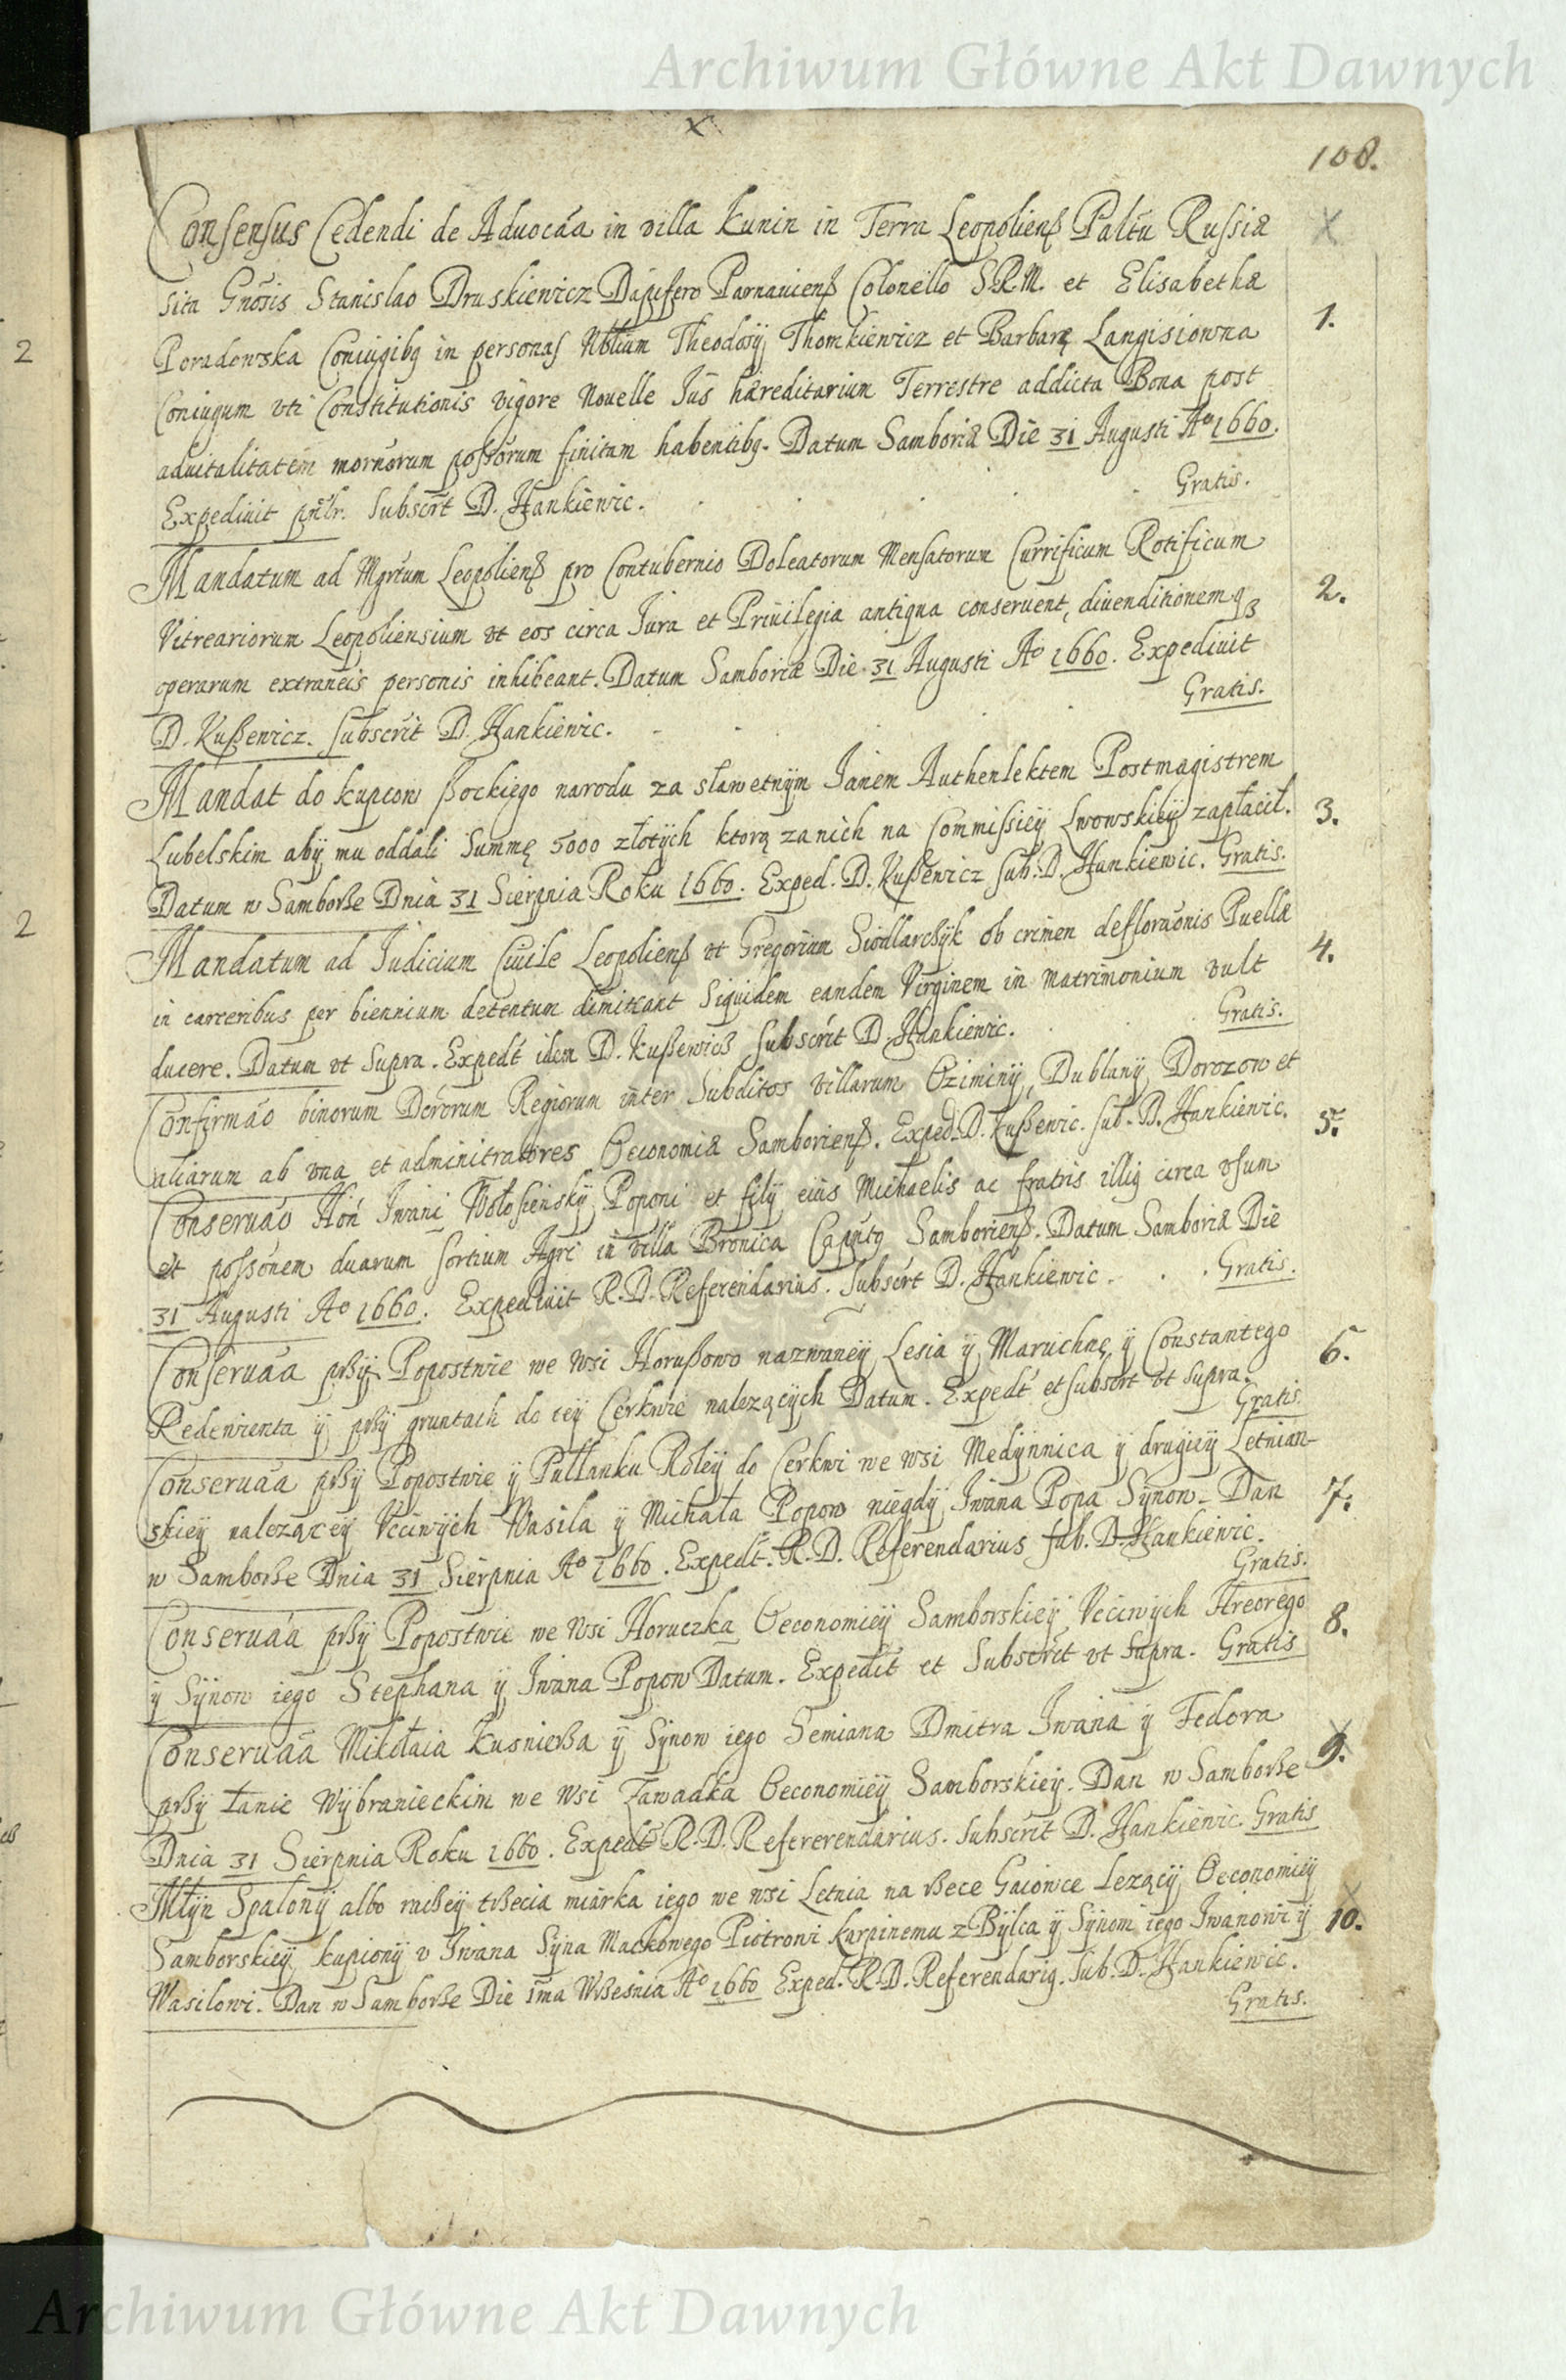 Archiwum Główne Akt Dawnych
108.
Consensus Cedendi de Aduocáa in villa Kunin in Terra Leopoliensß Paltu Russiæ
sita Gnósis Stanislao Druskiewicz Dapifero Parnauiensß Colonello S.R.M. et Elisabethæ
1.
Poradowska Coniugibq in personas Nbilium Theodosÿ Thomkiewicz et Barbaræ Langisiowna
Coniugum vti Constitutionis vigore Nouelle Jus hæreditarium Terrestre addicta Bona post
aduitalitatem possórum finitam habentibq. Datum Samboriæ Die 31 Augusti Aº 1660.
Expediuit Subscrt D. Hankiewic. Gratis.
Mandatum ad Mgrtum Leopoliensß pro Contubernio Doleatorum Mensatorum Currificum Rotificum
2.
Vitreariorum Leopoliensium vt eos circa Jura et Priuilegia antiqua conseruent, diuenditionemqз
operarum extraneis personis inhibeant. Datum Samboriæ Die 31 Augusti Aº 1660. Expediuit
D. Kußewicz. Subscrit D. Hankiewic. Gratis.
Mandat do kupcow ßockiego narodu za sławetnÿm Janem Authenlektem Postmagistrem
3.
Lubelskim abÿ mu oddali Summę 5000 złotÿch ktorą zanich na Commissieÿ Lwowskieÿ zapłacił.
Datum w Samborße Dnia 31 Sierpnia Roku 1660. Exped. D. Kußewicz sub. D. Hankiewic. Gratis.
Mandatum ad Judicium Ciuile Leopoliensß vt Gregorium Siodlarcßÿk ob crimen defloruónis Puellæ
4.
in carceribus per biennium detentum dimittant Siquidem eandem Virginem in Matrimonium vult
ducere. Datum vt Supra. Expedt idem D. Kußewicß Subscrit D. Hankiewic. Gratis.
Confirmáo binorum Decrorum Regiorum inter Subditos Villarum Oziminÿ, Dublanÿ Dorozow et
5.
aliarum ab vna et adminitratores Oeconomiæ Samboriensß. Exped. D. Kußewic. sub. D. Hankiewic.
Conseruáo Hon Iwani Wołosienskÿ Poponi et filÿ eius Michaelis ac fratris illiq circa vsum
et possónem duarum sortium Agri in villa Bronica Samboriensß. Datum Samboriæ Die
31 Augusti Aº 1660. Expediuit R.D. Referendarius. Subscrt D. Hankiewic. Gratis.
Conseruáa prßÿ Popostwie we Wsi Horußowo nazwaneÿ Lesia ÿ Maruchnę ÿ Constantego
6.
Redewienta ÿ prßÿ gruntach do teÿ Cerkwie nalezącÿch Datum. Expedt et subscrt vt supra.
Gratis.
Conseruáa prßÿ Popostwie ÿ Pułłanku Roleÿ do Cerkwi we wsi Medÿnnica ÿ drugieÿ Letnian-
7.
skieÿ naleząceÿ Vcciwÿch Wasila ÿ Michała Popow niegdÿ Iwana Popa Sÿnow. Dan
w Samborße Dnia 31 Sierpnia Aº 1660. Expedt. R.D. Referendarius sub. D. Hankiewic.
Gratis.
Conseruáa prßÿ Popostwie we Wsi Horuczka Oeconomieÿ Samborskieÿ Vcciwÿch Hreorego
8.
ÿ Sÿnow iego Stephana ÿ Iwana Popow Datum. Expedit et Subscrit vt supra. Gratis
Conseruáa Mikołaia Kusnierßa ÿ Sÿnow iego Semiana Dmitra Iwana ÿ Fedora
9.
prßÿ Łanie Wÿbranieckim we Wsi Zawadka Oeconomieÿ Samborskieÿ. Dan w Samborße
Dnia 31 Sierpnia Roku 1660. Expedt R.D. Refererendarius. Subscrit D. Hankiewic. Gratis
Młÿn Spalonÿ albo racßeÿ trßecia miarka iego we wsi Letnia na rßece Gaiowce Lezącÿ Oeconomieÿ
10.
Samborskieÿ kupionÿ v Iwana Sÿna Mackowego Piotrowi Karpinemu z Bÿlca ÿ Sÿnom iego Iwanowi ÿ
Wasilowi. Dan w Samborße Die 1ma Wrßesnia Aº 1660 Exped. R.D. Referendariq. Sub. D. Hankiewic.
Gratis.
Archiwum Główne Akt Dawnych